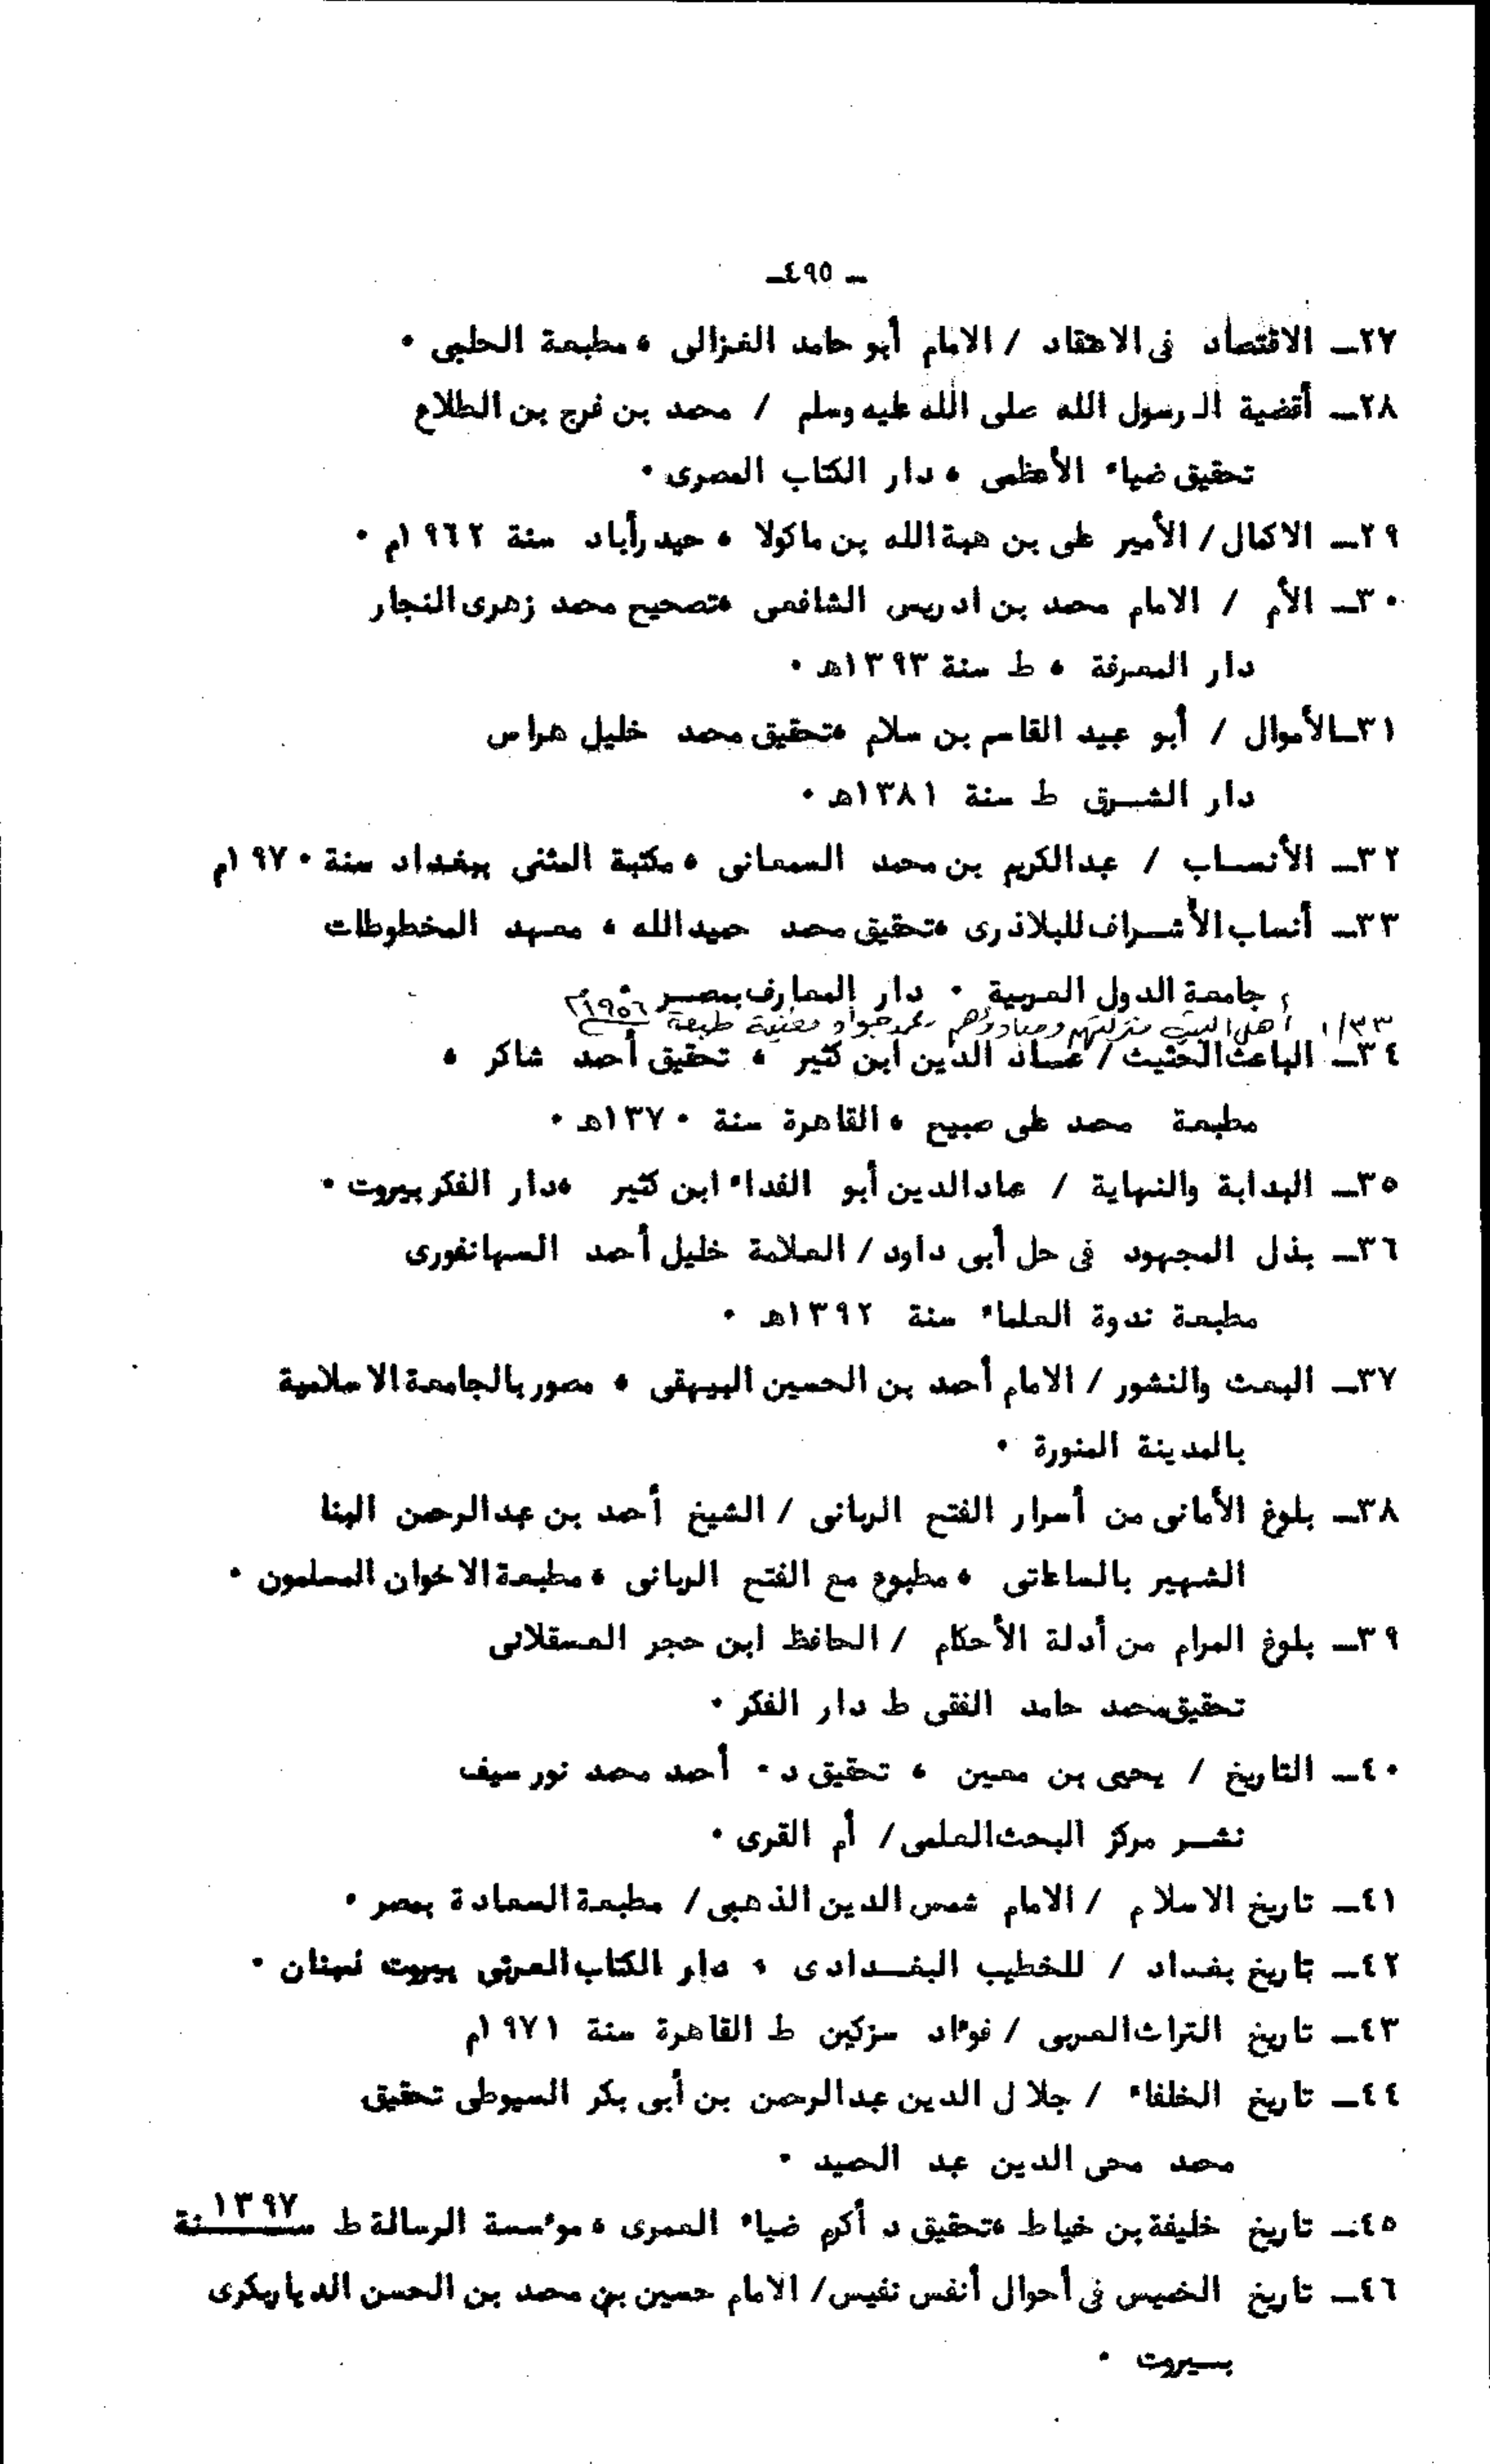 – ٤٩٥ـ
٢٧ـ الاقتصاد فى الاعتقاد / الامام أبو حامد الغزالى ، مطبعة الحلبى ٠
٢٨ـ أقضية الرسول الله صلى الله عليه وسلم / محمد بن فرج بن الطلاع
تحقيق ضياء الأعظمى ، دار الكتاب المصرى ٠
٢٩ـ الاكمال / الأمير على بن هبة الله بن ماكولا ، حيدرأباد سنة ١٩٦٢م ٠
٣٠ـ الأم / الامام محمد بن ادريس الشافعى ،تصحيح محمد زهرى النجار
دار المعرفة ، ط سنة ١٣٩٣هـ ٠
٣١ـالأموال / أبو عبيد القاسم بن سلام ،تحقيق محمد خليل هراس
دار الشرق ط سنة ١٣٨١هـ ٠
٣٢ـ الأنساب / عبدالكريم بن محمد السمعانى ، مكتبة المثنى ببغداد سنة ١٩٧٠م
٣٣ـ أنساب الأشراف للبلاذرى ،تحقيق محمد حميدالله ، معهد المخطوطات
، جامعة الدول العربية ٠ دار المعارف بمصر ٠
١/٣٣ أهل البيت منزلتهم ومبادؤهم محمد جواد مغنية طبعة ١٩٥٦م
٣٤ـ الباعث الحثيث / عماد الدين ابن كثير ، تحقيق أحمد شاكر ،
مطبعة محمد على صبيح ، القاهرة سنة ١٣٧٠هـ ٠
٣٥ـ البداية والنهاية / عماد الدين أبو الفداء ابن كثير ،دار الفكر بيروت ٠
٣٦ـ بذل المجهود فى حل أبى داود / العلامة خليل أحمد السهانفورى
مطبعة ندوة العلماء سنة ١٣٩٢هـ ٠
٣٧ـ البعث والنشور / الامام أحمد بن الحسين البيهقى ، مصور بالجامعة الاسلامية
بالمدينة المنورة ٠
٣٨ـ بلوغ الأمانى من أسرار الفتح الربانى / الشيخ أحمد بن عبدالرحمن البنا
الشهير بالساعاتى ، مطبوع مع الفتح الربانى ، مطبعة الاخوان المسلمون ٠
٣٩ـ بلوغ المرام من أدلة الأحكام / الحافظ ابن حجر العسقلانى
تحقيق محمد حامد الفقى ط دار الفكر ٠
٤٠ـ التاريخ / يحيى بن معين ، تحقيق د ٠ أحمد محمد نور سيف
نشر مركز البحث العلمى / أم القرى ٠
٤١ـ تاريخ الاسلام / الامام شمس الدين الذهبى / مطبعة السعادة بمصر ٠
٤٢ـ تاريخ بغداد / للخطيب البغدادى ، دار الكتاب العربى بيروت لبنان ٠
٤٣ـ تاريخ التراث العربى / فوءاد سزكين ط القاهرة سنة ١٩٧١م
٤٤ـ تاريخ الخلفاء / جلال الدين عبدالرحمن بن أبى بكر السيوطى تحقيق
محمد محى الدين عبد الحميد ٠
٤٥ـ تاريخ خليفة بن خياط ،تحقيق د أكرم ضياء العمرى ، موءسسة الرسالة ط سنة ١٣٩٧
٤٦ـ تاريخ الخميس فى أحوال أنفس نفيس / الامام حسين بن محمد بن الحسن الديابكرى
بيروت ٠